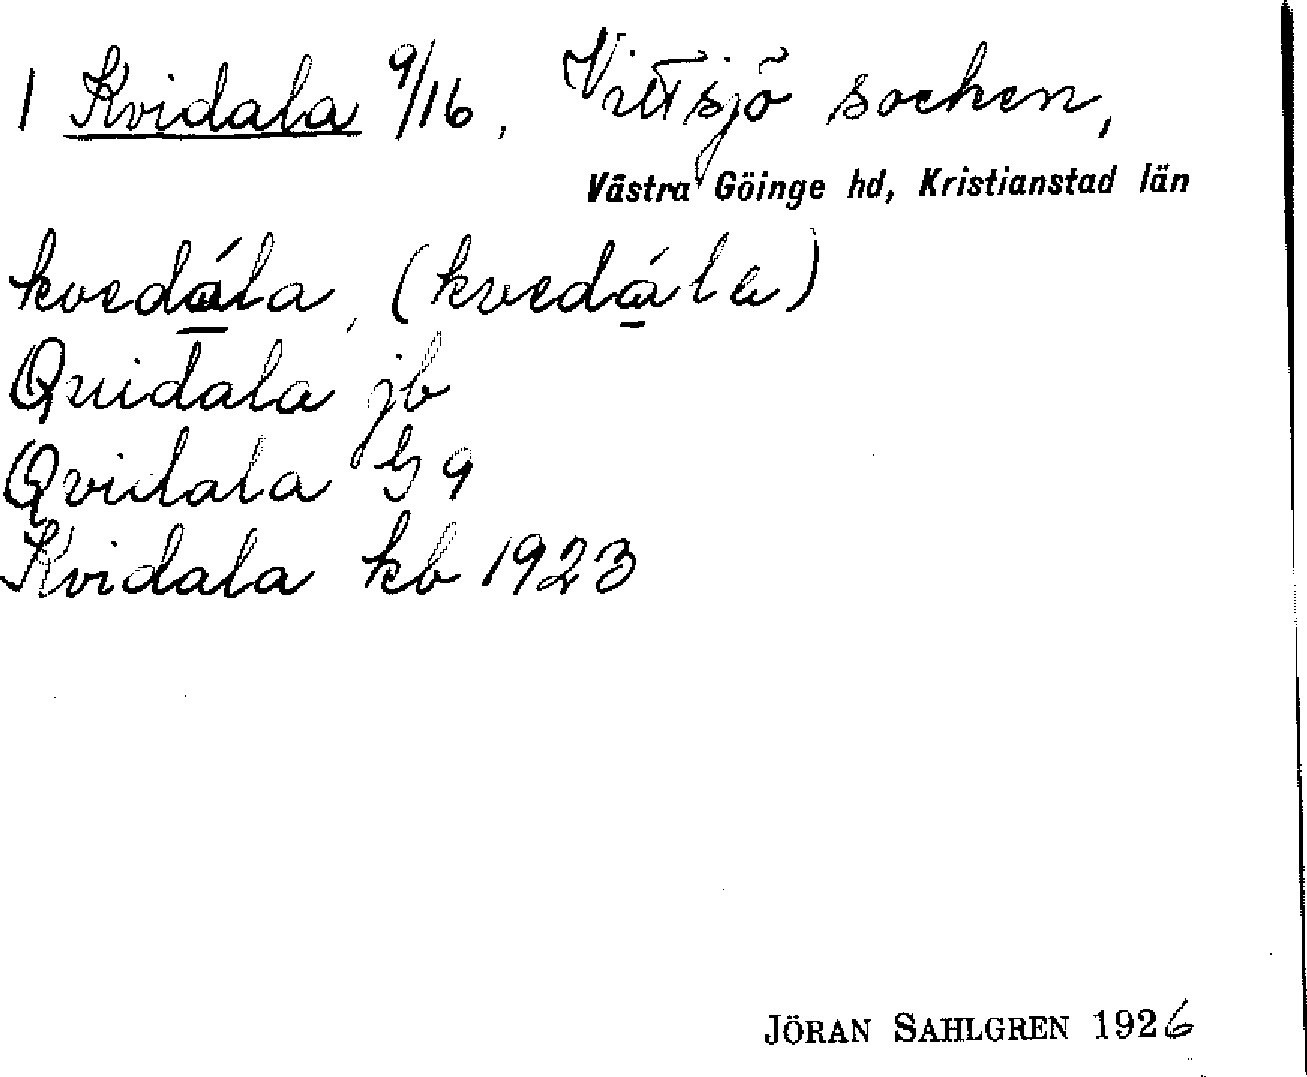 1 Kvidala 9/16, Vittsjö socken,
Västra Göinge hd, Kristianstad län
kvedá̲la, (kvedá̲la)
Quidala jb
Qvidala G 9
Kvidala kb 1923
JÖRAN SAHLGREN 1926